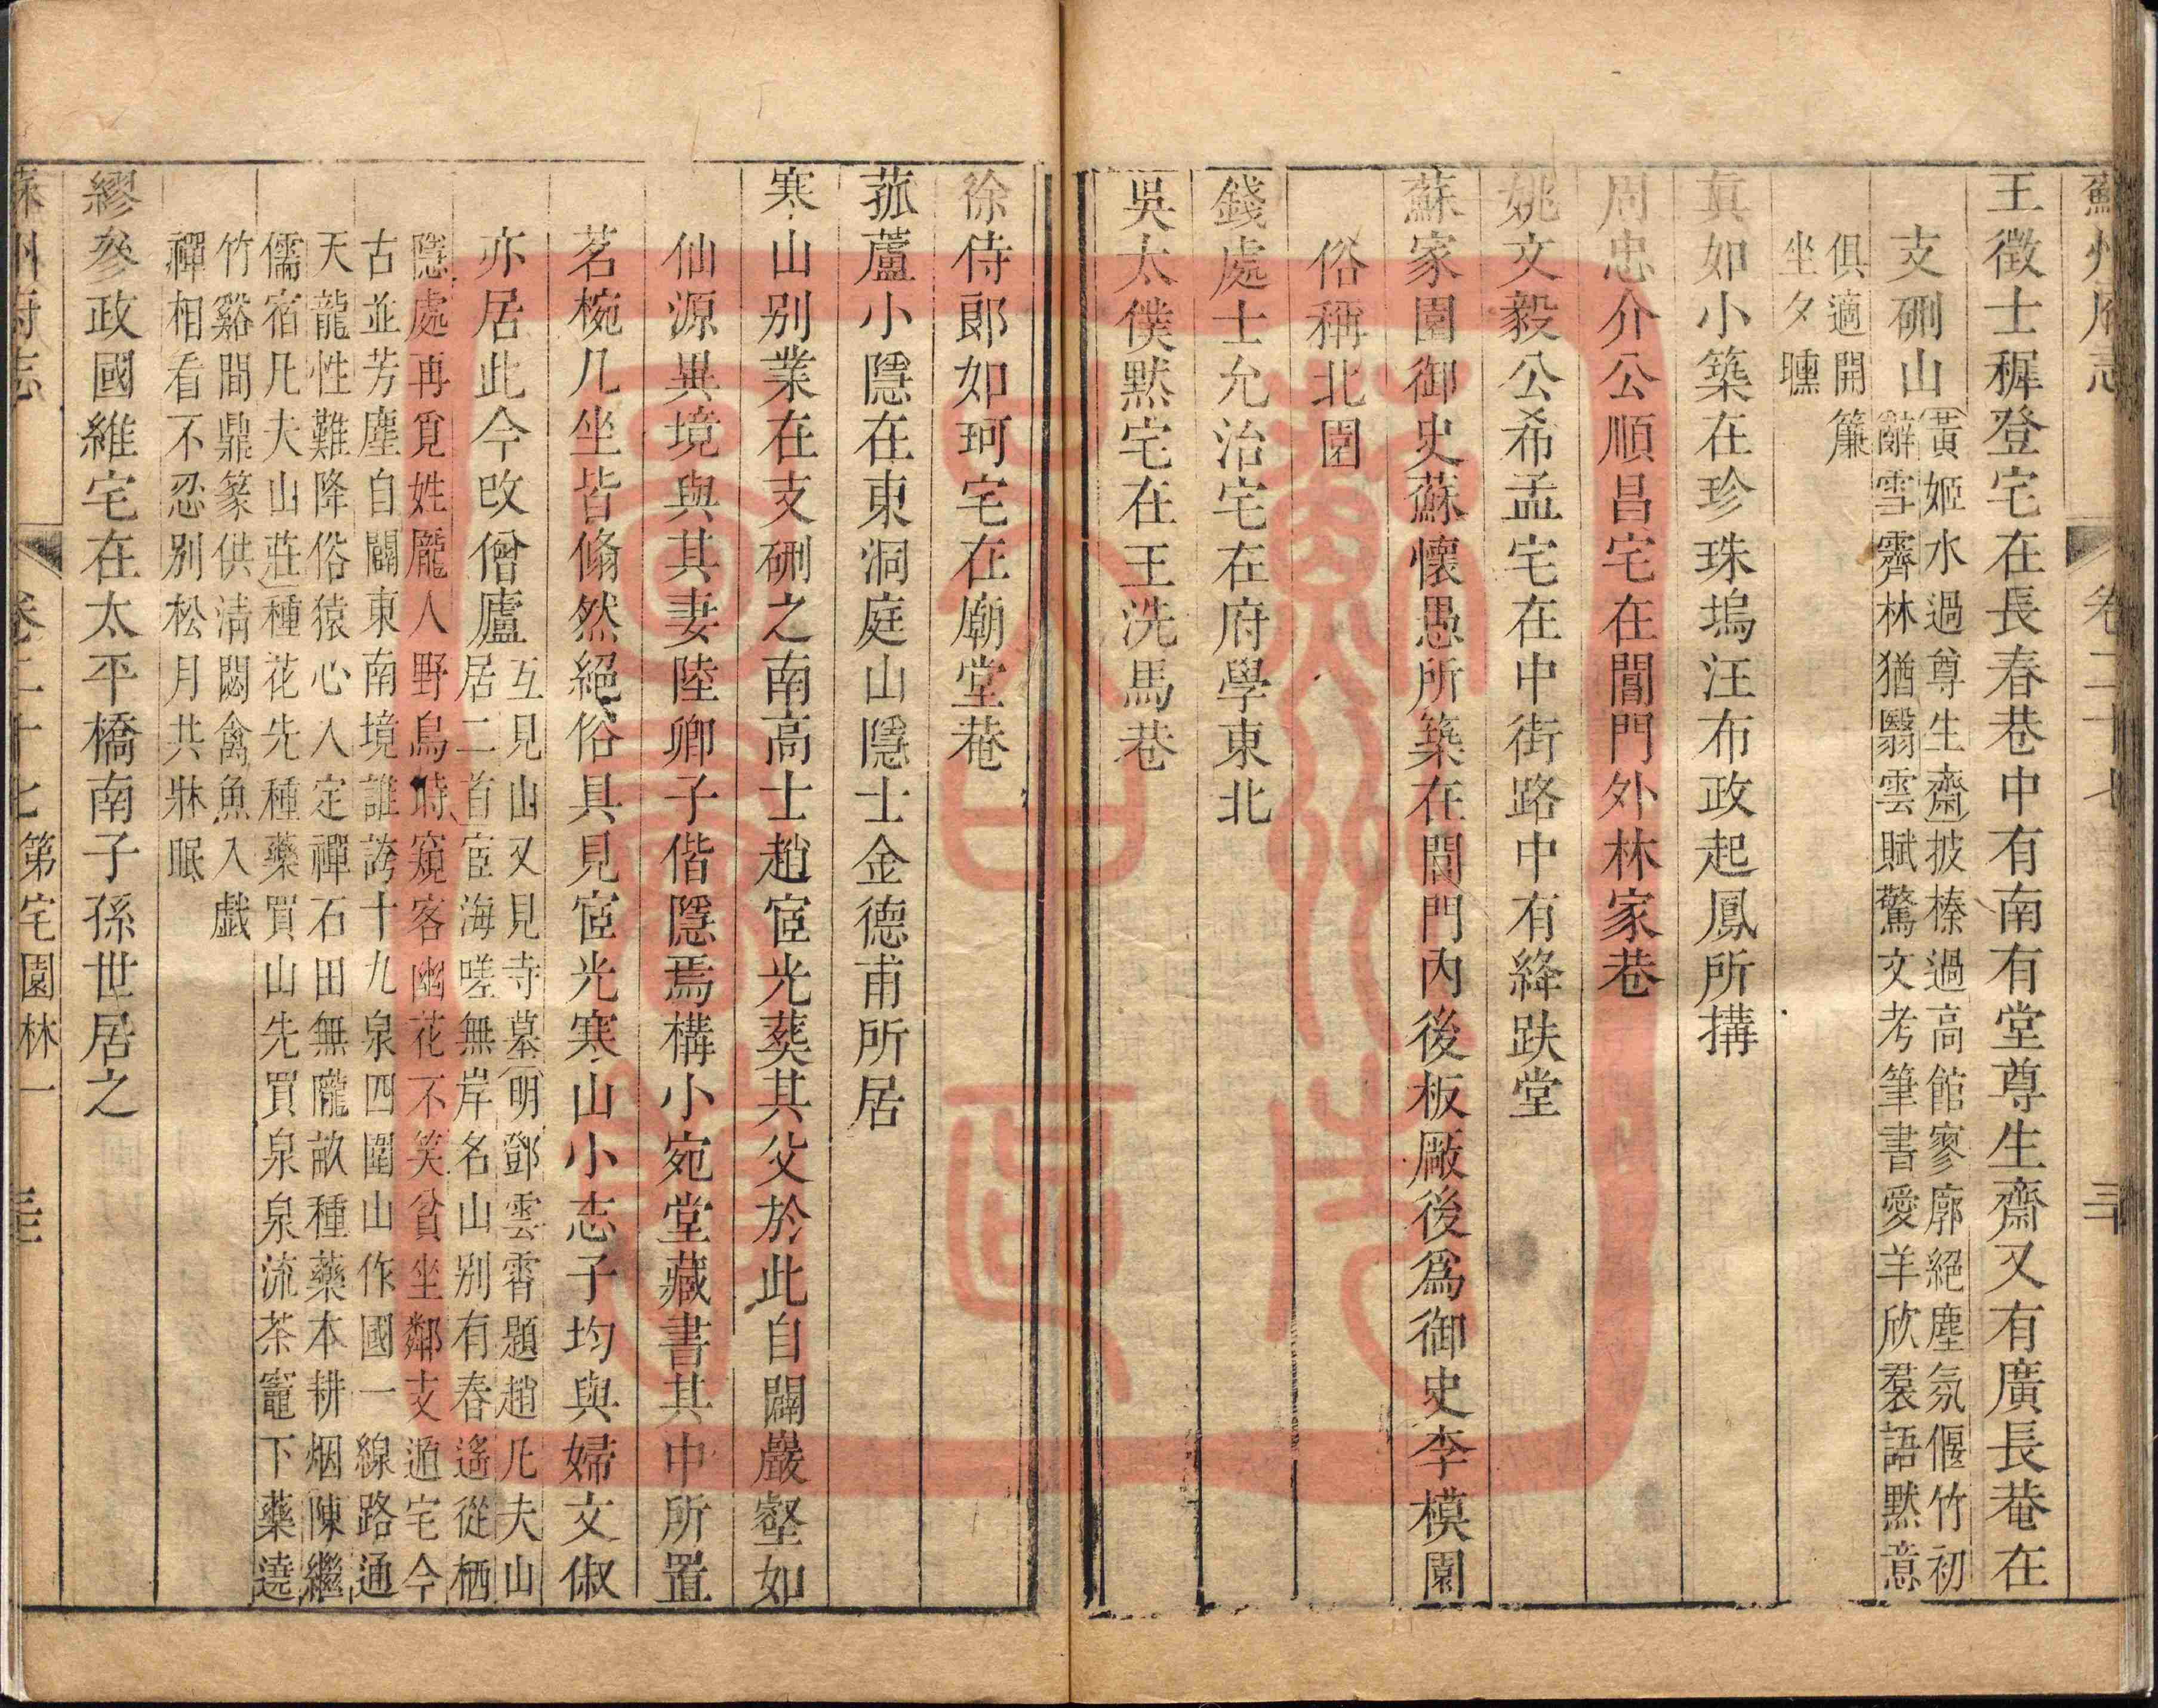 蘇州府志 卷二十七 三
王徵士穉登宅在長春巷中有南有堂尊生齋又有廣長菴在
支硎山
黃姬水過尊生齋披榛過高館寥廓絕塵氛偃竹初
辭雪霽林猶翳雲賦驚文考筆書愛羊欣裠語默意
俱適開簾
坐夕曛
真如小築在珍珠塢汪布政起鳳所搆
周忠介公順昌宅在閶門外林家巷
姚文毅公希孟宅在中街路中有絳趺堂
蘇家園御史蘇懷愚所築在閶門內後板廠後爲御史李模園
俗稱北園
錢處士允治宅在府學東北
吳太僕默宅在王洗馬巷
徐侍郎如珂宅在廟堂巷
菰蘆小隱在東洞庭山隱士金德甫所居
寒山別業在支硎之南高士趙宧光葬其父於此自闢巖壑如
仙源異境與其妻陸卿子偕隱焉構小宛堂藏書其中所置
茗椀几坐皆翛然絕俗具見宧光寒山小志子均與婦文俶
亦居此今改僧廬
互見山又見寺墓明鄧雲霄題趙凡夫山
居二首宦海嗟無岸名山別有春遙從栖
隱處再覓姓龐人野鳥時窺客幽花不笑貧坐鄰支遁宅今
古並芳塵自闢東南境誰誇十九泉四圍山作國一線路通
天龍性難降俗猿心入定禪石田無隴畝種藥本耕烟陳繼
儒宿凡夫山莊種花先種藥買山先買泉泉流茶竈下藥遶
竹谿間鼎篆供清閟禽魚入戲
禪相看不忍別松月共牀眠
繆參政國維宅在太平橋南子孫世居之
蘇州府志 卷二十七 第宅園林一 三